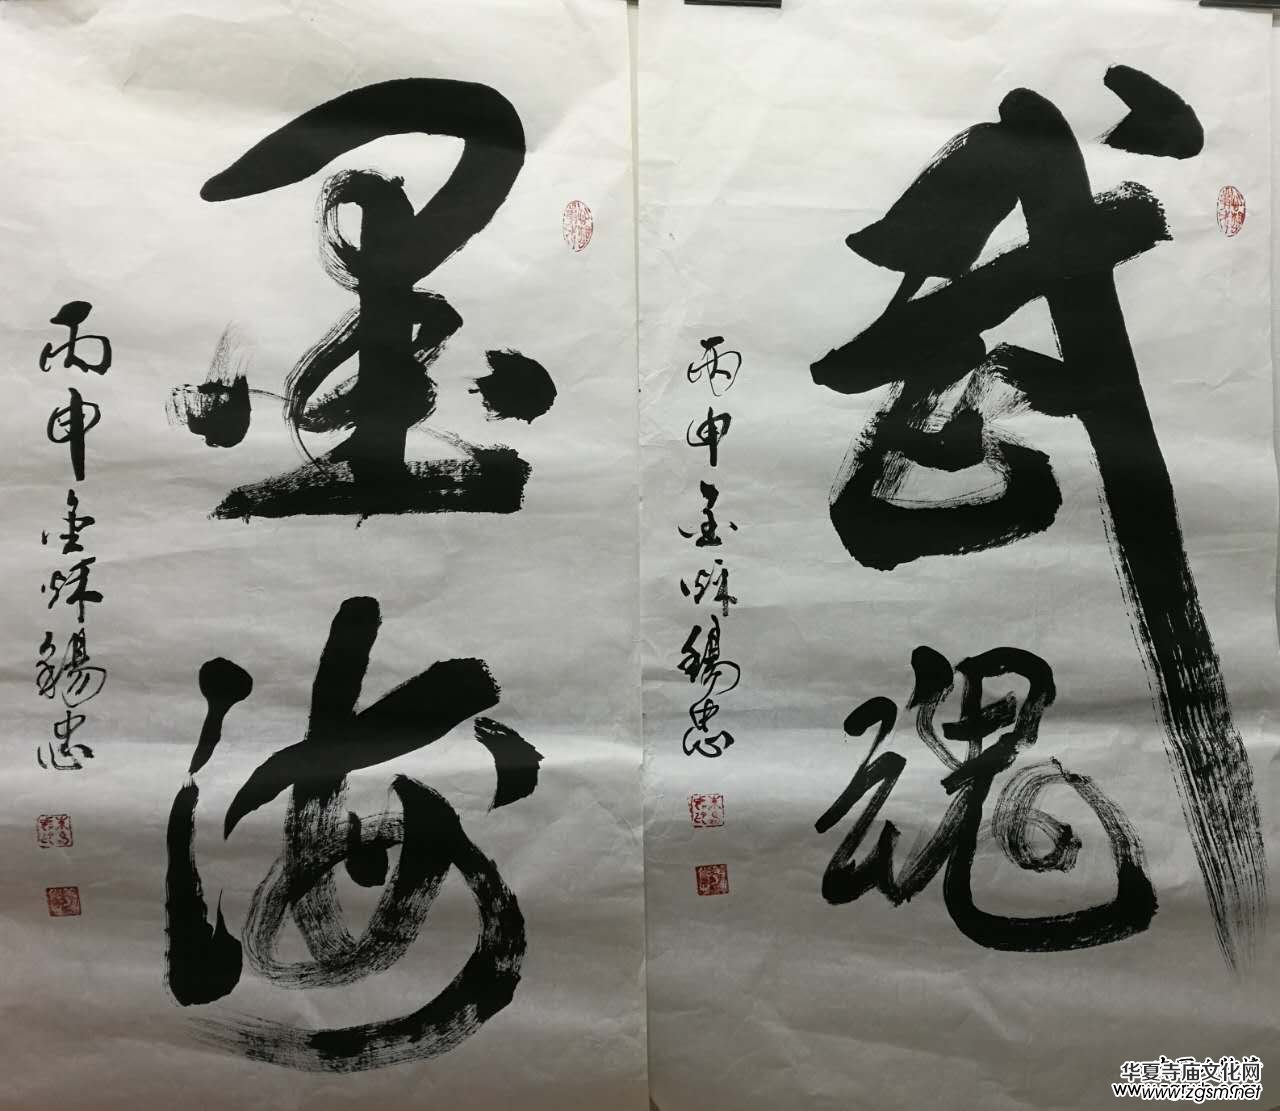 武魂
丙申金秌錫忠
墨海
丙申金秌錫忠
华夏寺庙文化网
www.zgsm.net